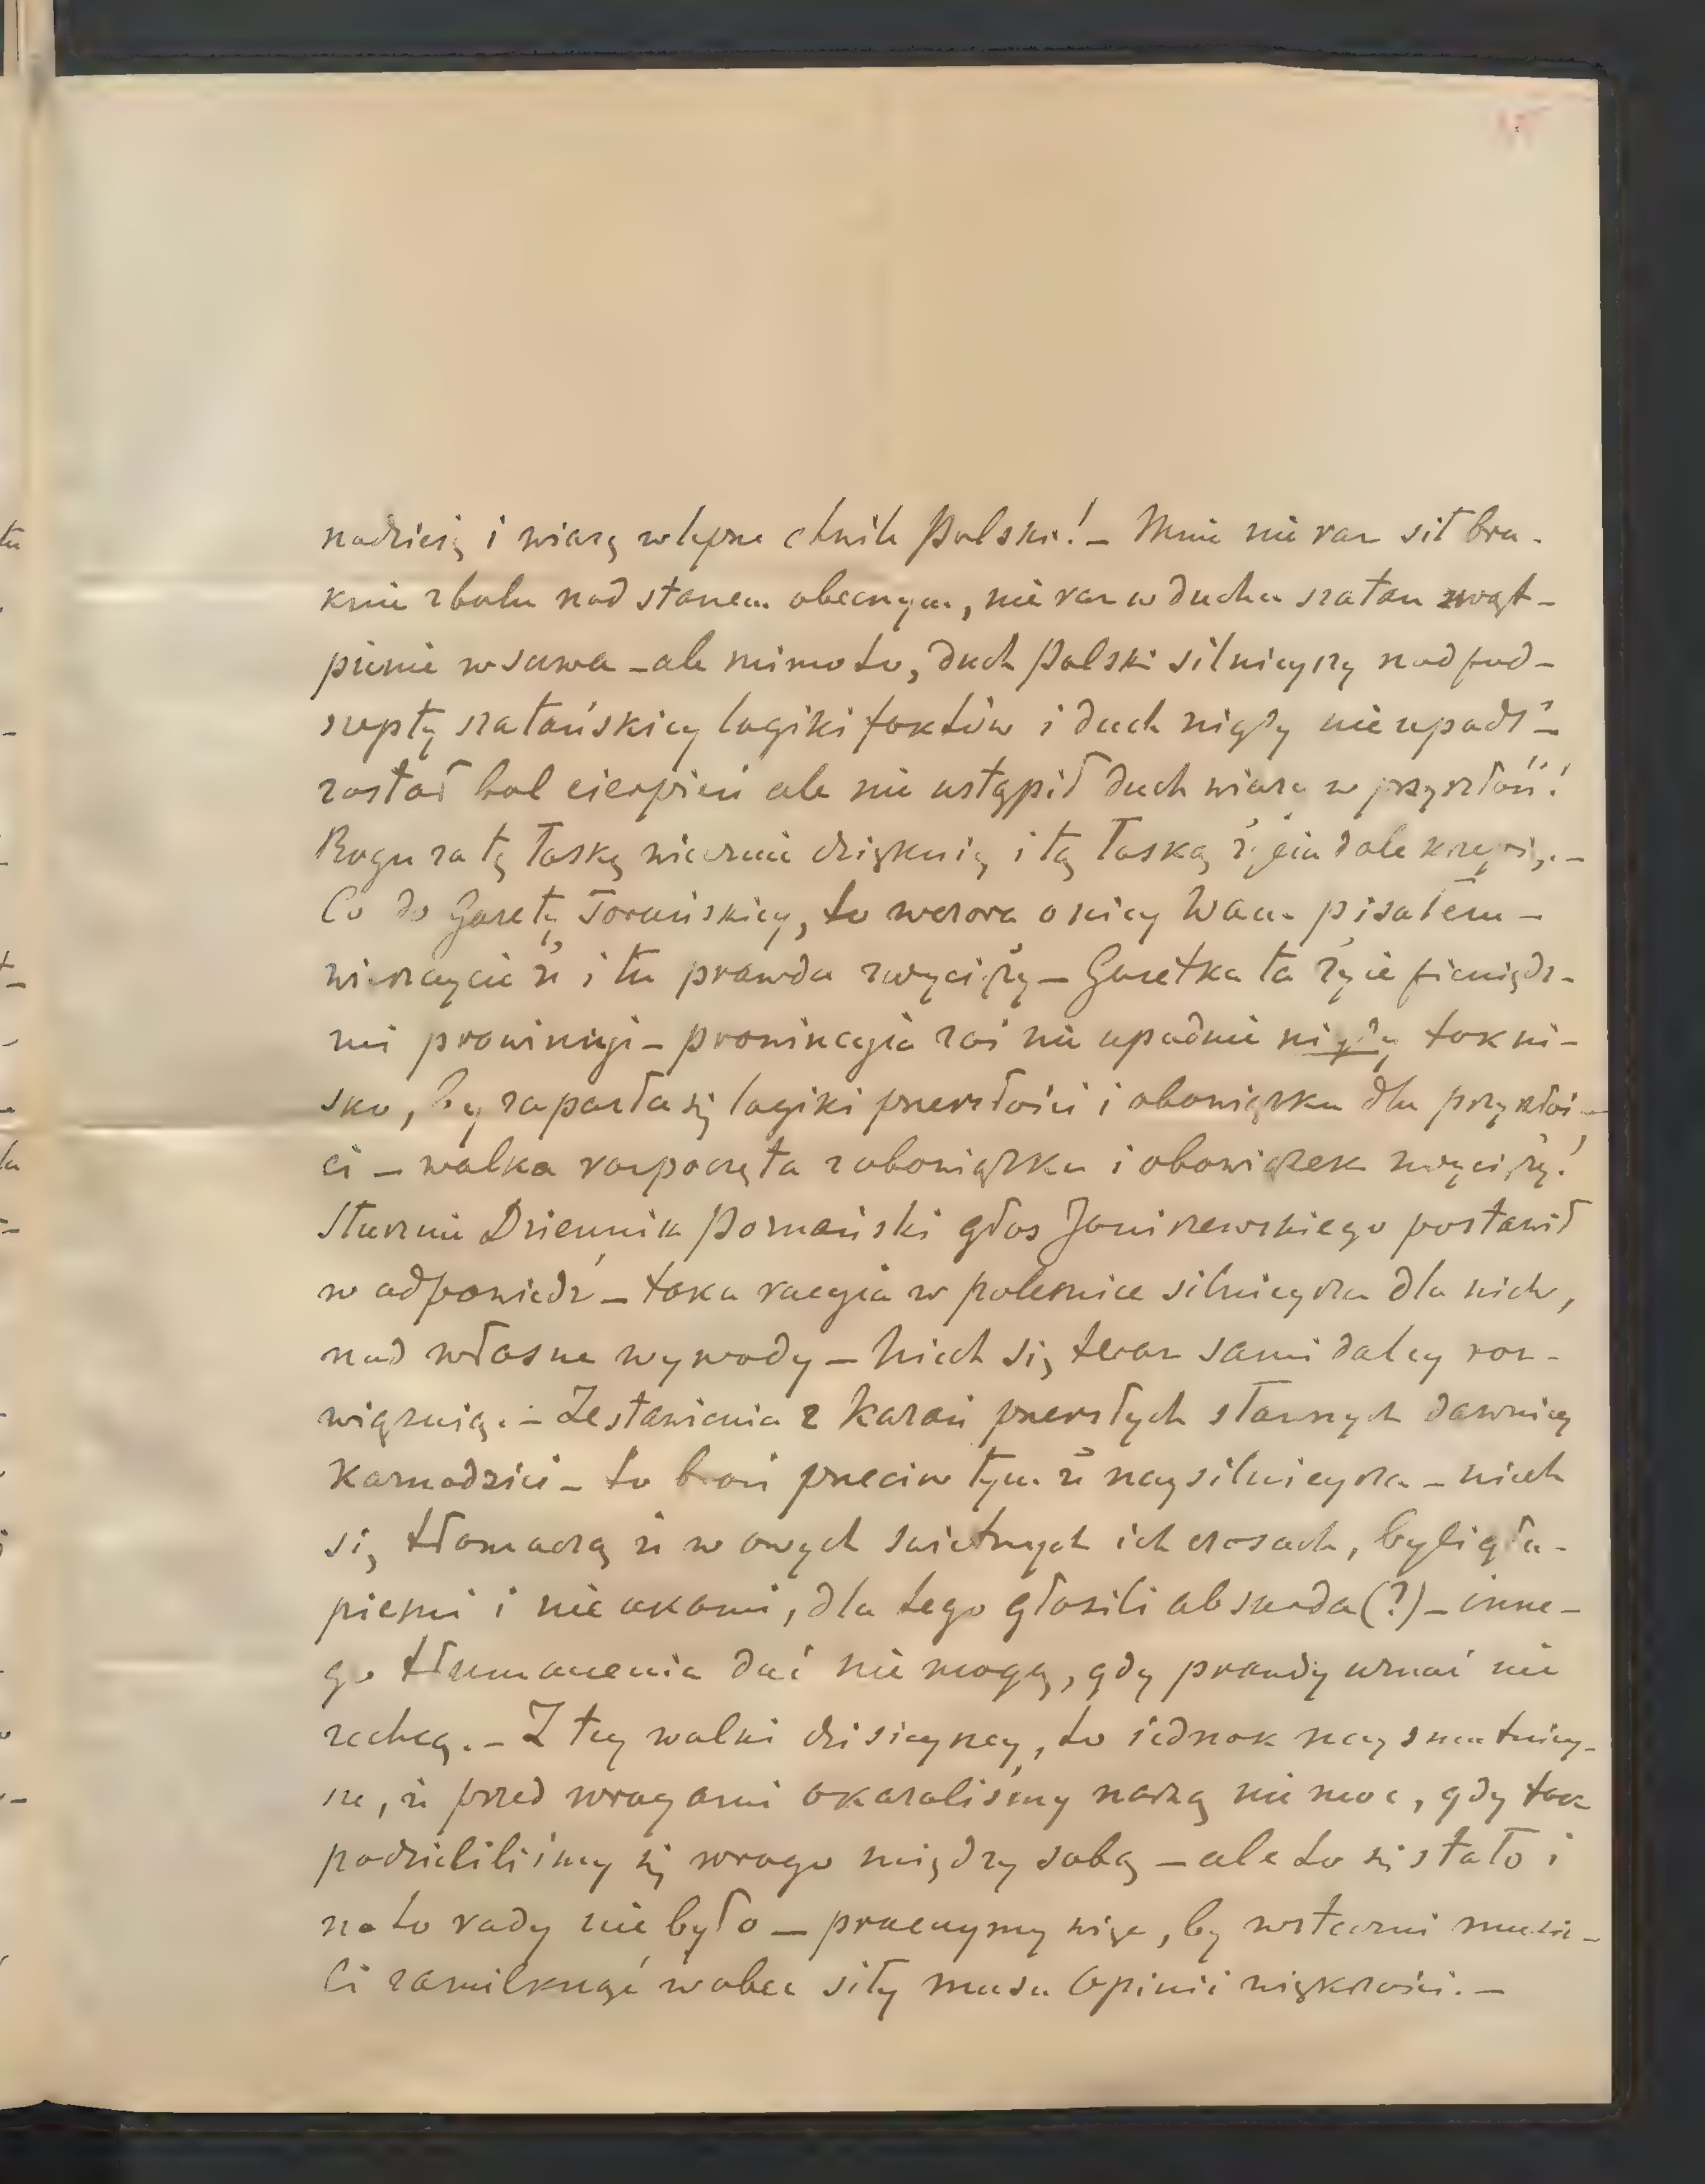 nadzieią i wiarą w lepsze chwile Polski! – Mnie nie raz sił bra-
knie z bolu nad stanem obecnym, nie raz w ducha szatan zwąt-
pienie wsuwa – ale mimo to, duch Polski silnieyszy nad pod-
szepty szatańskiey logiki faktów i duch nigdy nie upadł –
został bol cierpień ale nie ustąpił duch wiary w przyszłość!
Bogu za tę łaskę wiecznie dziękuię i tą łaską życia dale krzepię. –
Co do Gazety Toruńskiey, to wczora o niey Wam pisałem –
wierzaycie że i tu prawda zwycięży – Gazetka ta żyie pieniędz-
mi prowincyi – prowincyia zaś nie upadnie nigdy tak ni-
sko, by zaparła się logiki przeszłości i obowiązku dla przyszłoś-
ci – walka rozpoczęta z obowiązku i obowiązek zwycięży!
Słusznie Dziennik Poznański głos Janiszewskiego postawił
w odpowiedź – taka racyia w polemice silnieysza dla nich,
nad własne wywody – Niech się teraz sami daley roz-
wiązuią. – Zestawienia z kazań przeszłych sławnych dawniey
Kaznodziei – to broń przeciw tym że naysilnieysza – niech
się tłomaczą że w owych świetnych ich czasach, byli głu-
piemi i nieukami, dla tego głosili absurda (?) – inne-
go tłumaczenia dać nie mogą, gdy prawdy uznać nie
zechcą. – Z tey walki dzisieyszey, to iednak naysmutniey-
sze, że przed wrogami okazaliśmy naszą niemoc, gdy tak
podzieliliśmy się wrogo między sobą – ale to się stało i
na to rady nie było – pracuymy więc, by wsteczni musie-
li zamilknąć wobec siły masu Opinii większości. –